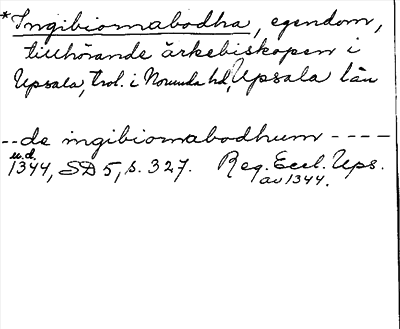 *Ingibiornabodha, egendom,
tillhörande ärkebiskopen i
Upsala, trol. i Norunda hd, Upsala län
--de ingibiornabodhum ----
u.d.
1344, SD 5, s. 327. Reg. Eccl. Ups.
av 1344.